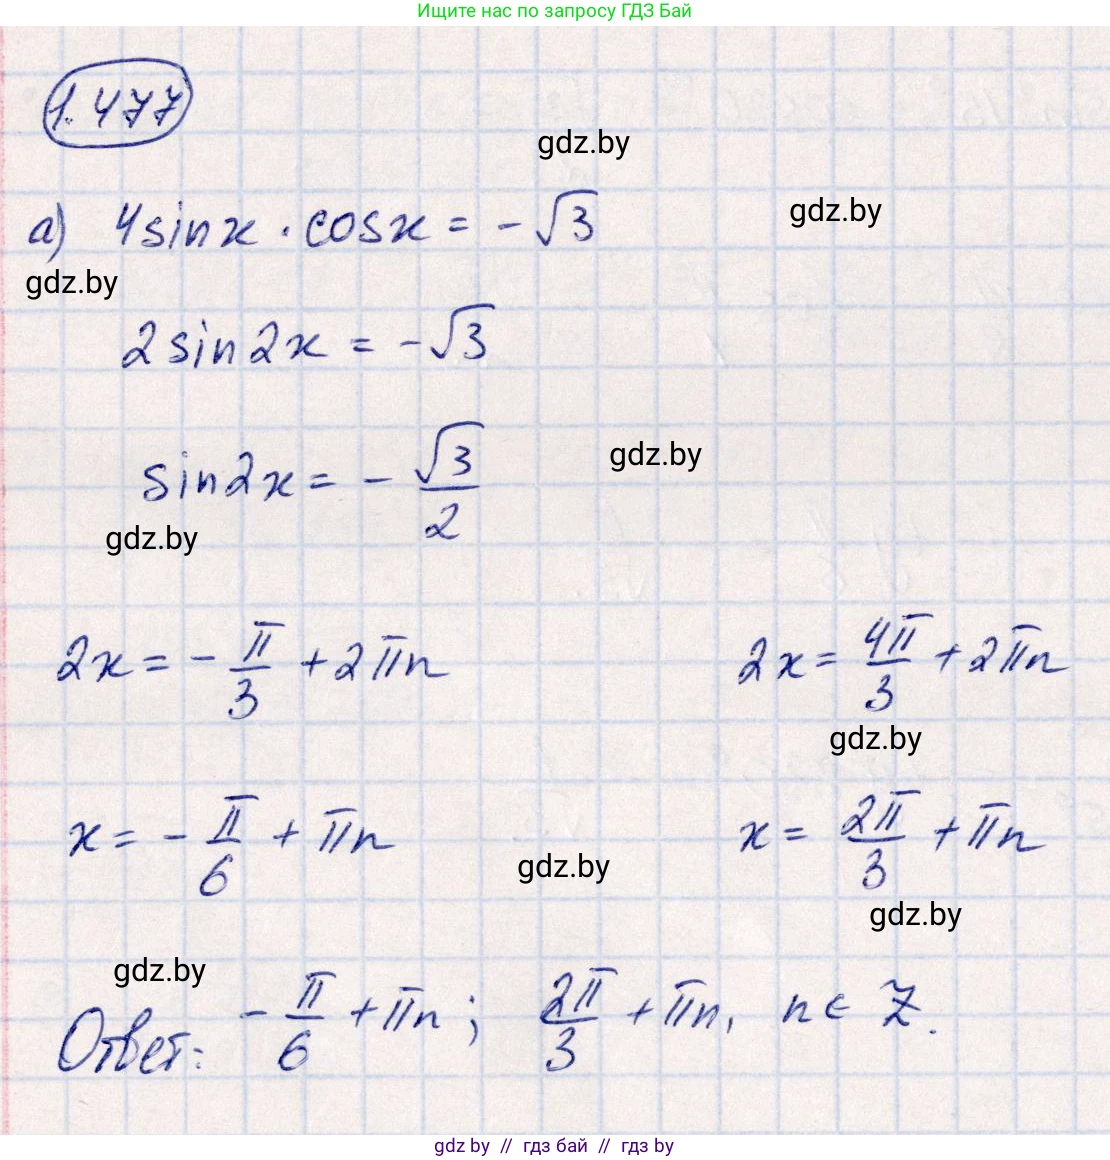 Ищите нас по запросу ГДЗ Бай
1.477
gdz.by
а) 4sinx · cosx = -√3
gdz.by
gdz.by
2sin2x = -√3
sin2x = -√3/2
gdz.by
gdz.by
2x = -π/3 + 2πn 2x = 4π/3 + 2πn
gdz.by
x = -π/6 + πn x = 2π/3 + πn
gdz.by
gdz.by
gdz.by
Ответ: -π/6 + πn; 2π/3 + πn, n ∈ Z.
gdz.by // гдз бай // гдз by